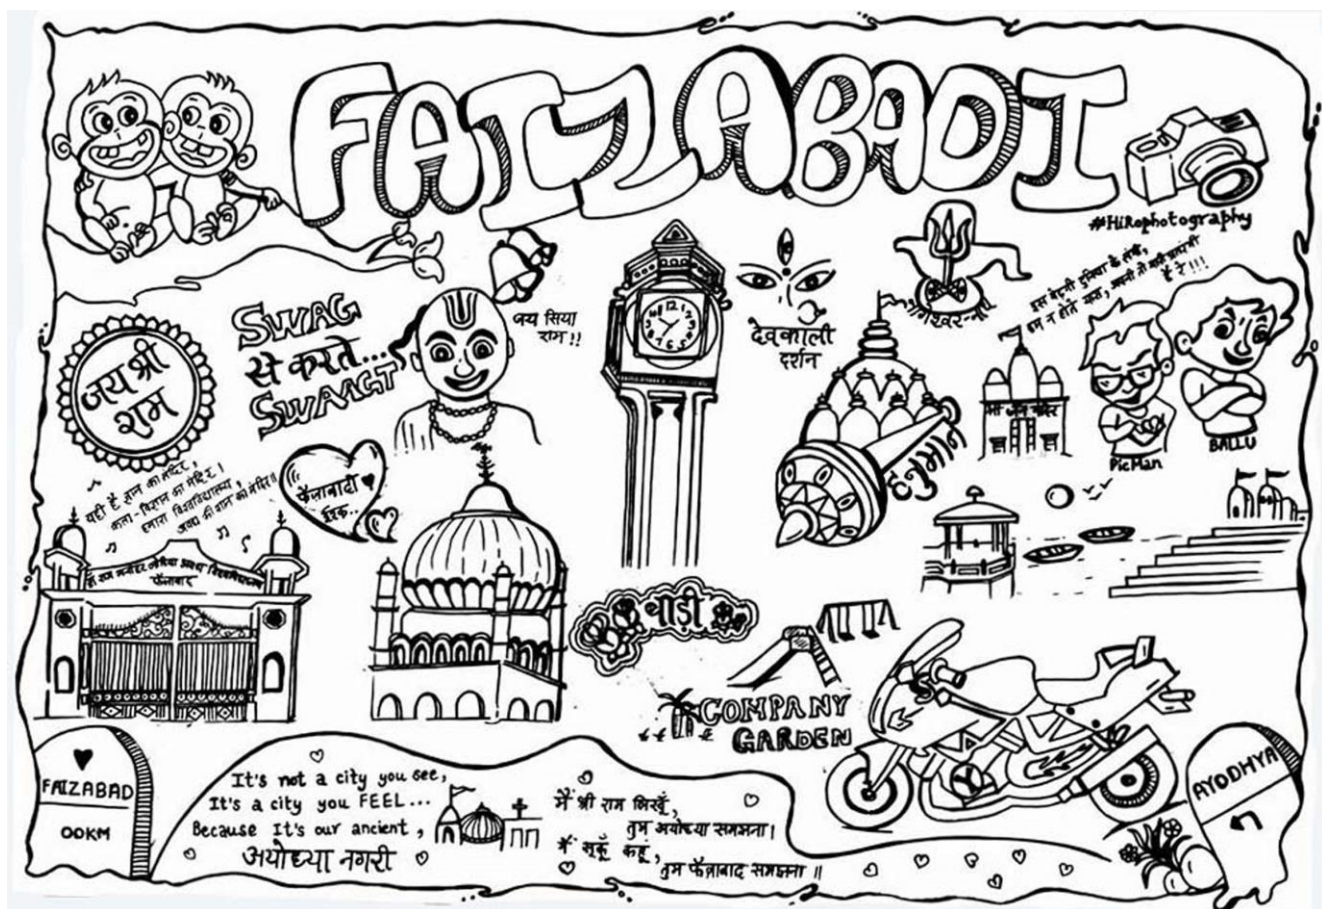 FAIZABADI
#HiRophotography
जय श्री
राम
SWAG
से करते...
SWAAGT
जय सिया
राम!!
12
देवकाली
दर्शन
हनुमान
PicMan
BALLU
यही है ज्ञान का मंदिर,
कला-विज्ञान का मंदिर।
हमारा विश्वविद्यालय,
अवध की शान का मंदिर॥
फ़ैज़ाबादी
इश्क़..
डॉ राम मनोहर लोहिया अवध विश्वविद्यालय
फ़ैज़ाबाद
COMPANY
GARDEN
FAIZABAD
00KM
It's not a city you see,
It's a city you FEEL...
Because It's our ancient,
अयोध्या नगरी
मैं श्री राम लिखूँ,
तुम अयोध्या समझना।
मैं सुकूँ कहूं,
तुम फ़ैज़ाबाद समझना॥
AYODHYA